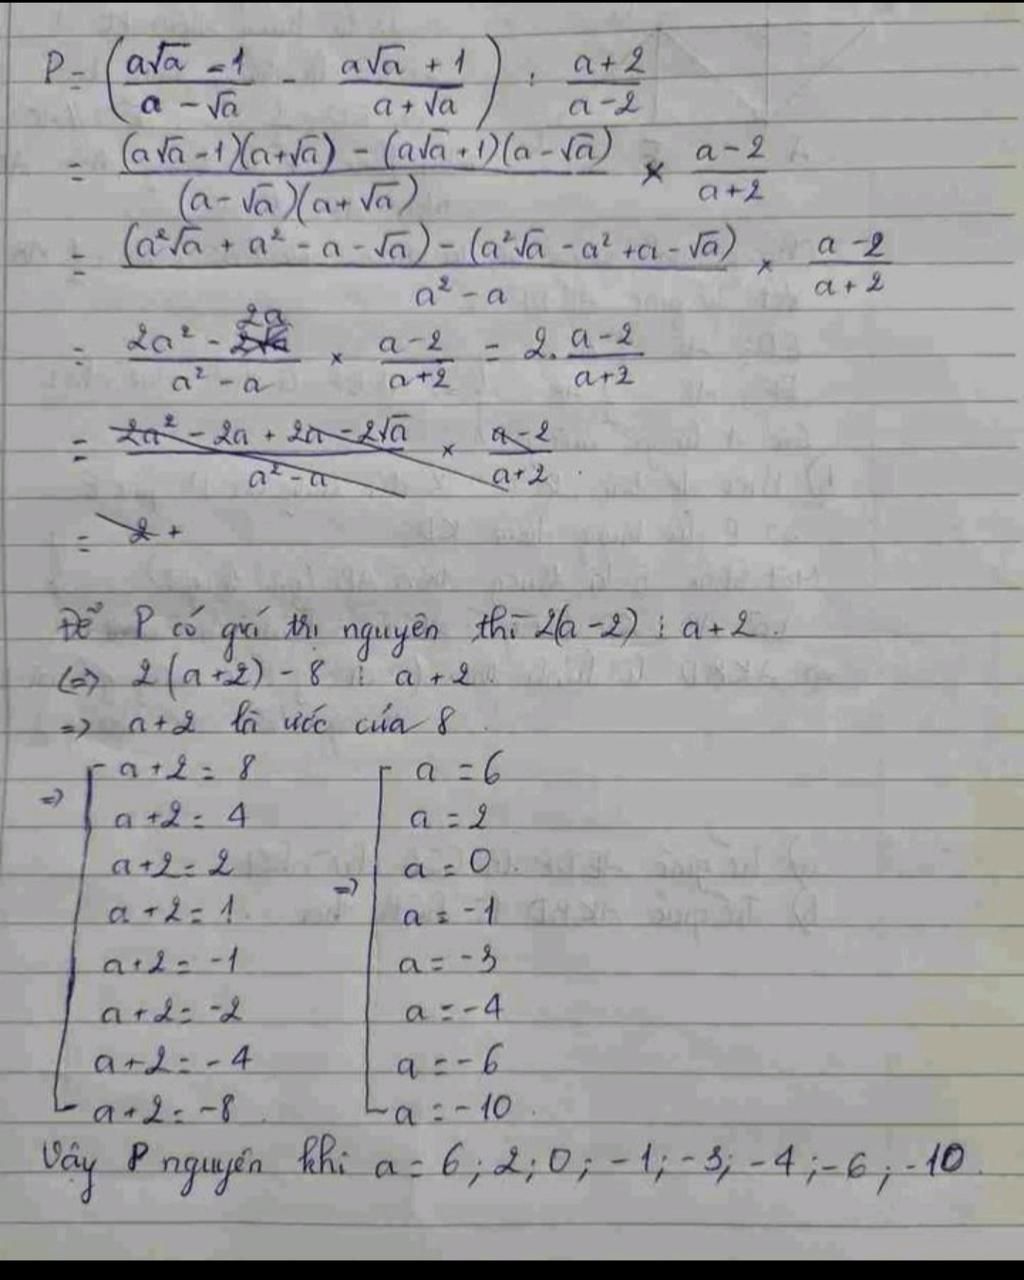 P = (\frac{a\sqrt{a} - 1}{a - \sqrt{a}} - \frac{a\sqrt{a} + 1}{a + \sqrt{a}}) : \frac{a + 2}{a - 2}
= \frac{(a\sqrt{a} - 1)(a + \sqrt{a}) - (a\sqrt{a} + 1)(a - \sqrt{a})}{(a - \sqrt{a})(a + \sqrt{a})} × \frac{a - 2}{a + 2}
= \frac{(a²\sqrt{a} + a² - a - \sqrt{a}) - (a²\sqrt{a} - a² + a - \sqrt{a})}{a² - a} × \frac{a - 2}{a + 2}
= \frac{2a² - 2a}{a² - a} × \frac{a - 2}{a + 2} = 2 . \frac{a - 2}{a + 2}
= \frac{2a² - 2a + 2a - 2\sqrt{a}}{a² - a} × \frac{a - 2}{a + 2}
= 2 +
Để P có giá trị nguyên thì 2(a - 2) ⋮ a + 2.
(=) 2(a + 2) - 8 ⋮ a + 2
=> a + 2 là ước của 8.
=> [ a + 2 = 8 => [ a = 6
a + 2 = 4 a = 2
a + 2 = 2 a = 0
a + 2 = 1 a = -1
a + 2 = -1 a = -3
a + 2 = -2 a = -4
a + 2 = -4 a = -6
a + 2 = -8 a = -10.
Vậy P nguyên khi a = 6 ; 2 ; 0 ; -1 ; -3 ; -4 ; -6 ; -10.